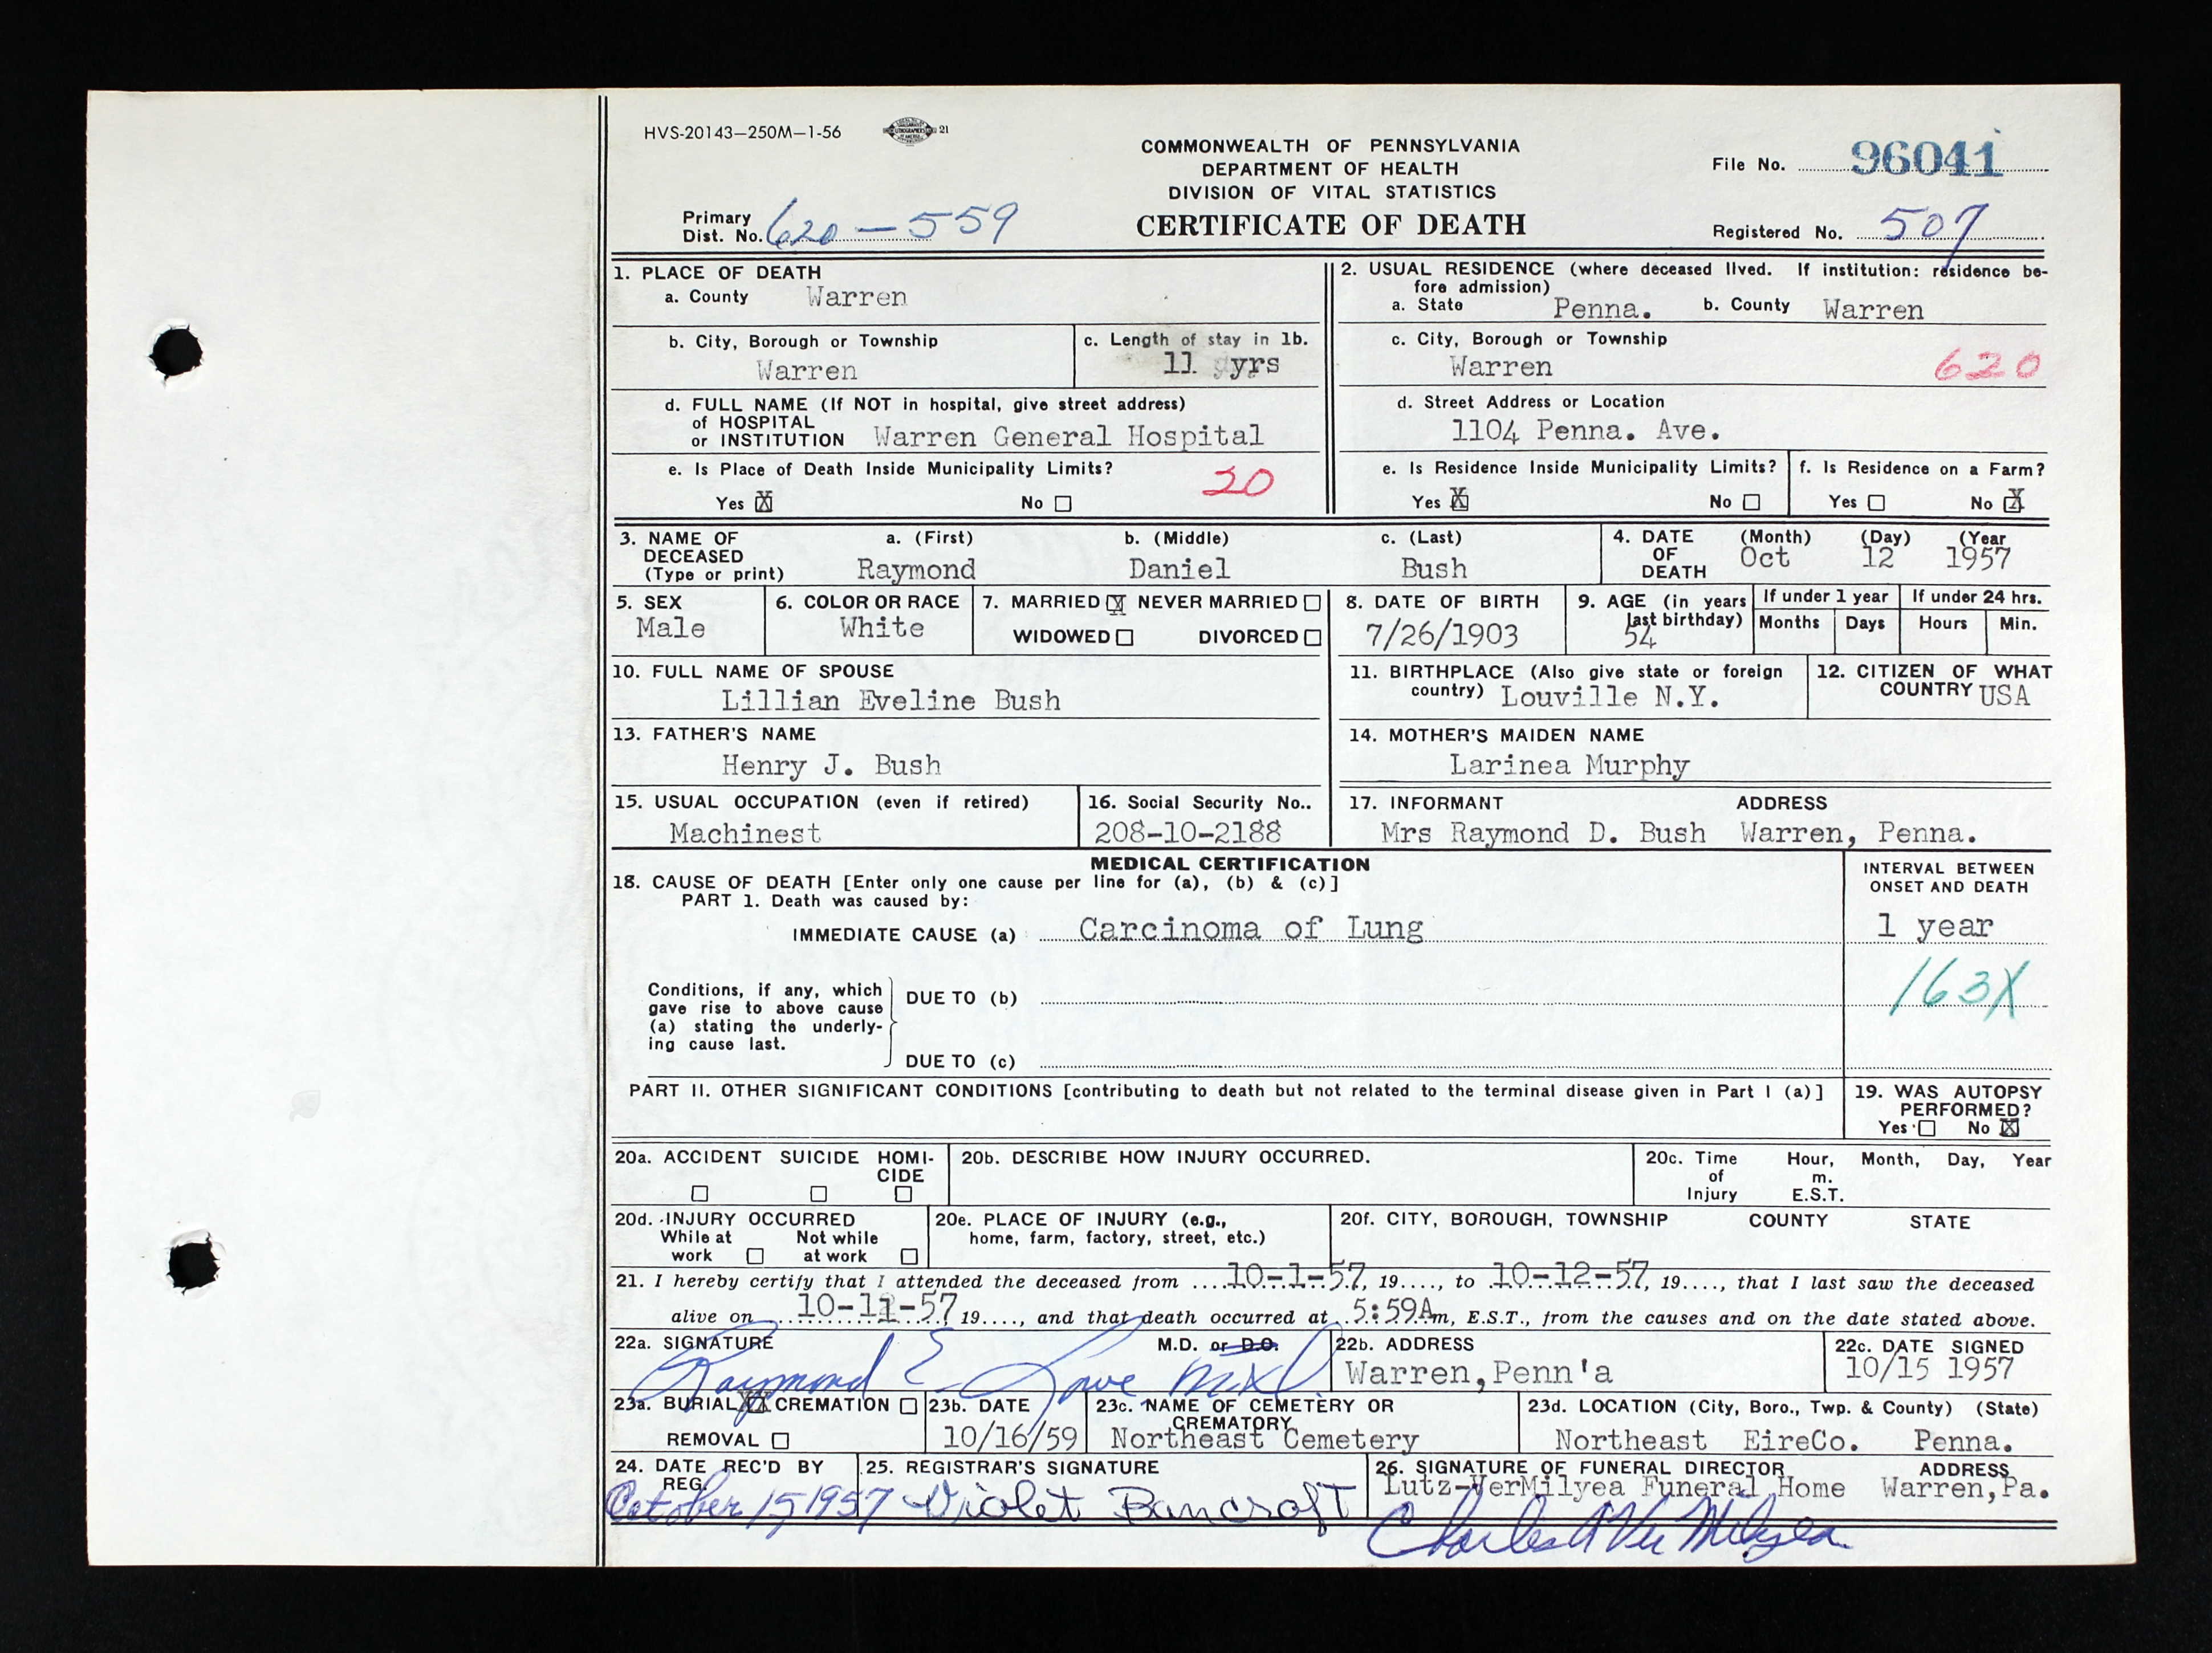 HVS-20143—250M—1-56 21
COMMONWEALTH OF PENNSYLVANIA
DEPARTMENT OF HEALTH
DIVISION OF VITAL STATISTICS
CERTIFICATE OF DEATH
File No. 96041
Primary
Dist. No. 620-559
Registered No. 507
1. PLACE OF DEATH
a. County Warren
2. USUAL RESIDENCE (where deceased lived. If institution: residence be-
fore admission)
a. State Penna. b. County Warren
b. City, Borough or Township
Warren
c. Length of stay in 1b.
11 yrs
c. City, Borough or Township
Warren 620
d. FULL NAME (If NOT in hospital, give street address)
of HOSPITAL
or INSTITUTION Warren General Hospital
d. Street Address or Location
1104 Penna. Ave.
e. Is Place of Death Inside Municipality Limits? 20
Yes X No
e. Is Residence Inside Municipality Limits?
Yes X No
f. Is Residence on a Farm?
Yes No X
3. NAME OF
DECEASED
(Type or print)
a. (First) b. (Middle) c. (Last)
Raymond Daniel Bush
4. DATE
OF
DEATH
(Month) (Day) (Year
Oct 12 1957
5. SEX
Male
6. COLOR OR RACE
White
7. MARRIED X NEVER MARRIED
WIDOWED DIVORCED
8. DATE OF BIRTH
7/26/1903
9. AGE (in years
last birthday)
54
If under 1 year
Months Days
If under 24 hrs.
Hours Min.
10. FULL NAME OF SPOUSE
Lillian Eveline Bush
11. BIRTHPLACE (Also give state or foreign
country) Louville N.Y.
12. CITIZEN OF WHAT
COUNTRY USA
13. FATHER'S NAME
Henry J. Bush
14. MOTHER'S MAIDEN NAME
Larinea Murphy
15. USUAL OCCUPATION (even if retired)
Machinest
16. Social Security No..
208-10-2188
17. INFORMANT ADDRESS
Mrs Raymond D. Bush Warren, Penna.
MEDICAL CERTIFICATION
18. CAUSE OF DEATH [Enter only one cause per line for (a), (b) & (c)]
PART 1. Death was caused by:
IMMEDIATE CAUSE (a) Carcinoma of Lung
INTERVAL BETWEEN
ONSET AND DEATH
1 year
163X
Conditions, if any, which
gave rise to above cause
(a) stating the underly-
ing cause last.
DUE TO (b)
DUE TO (c)
PART II. OTHER SIGNIFICANT CONDITIONS [contributing to death but not related to the terminal disease given in Part I (a)]
19. WAS AUTOPSY
PERFORMED?
Yes No X
20a. ACCIDENT SUICIDE HOMI-
CIDE
20b. DESCRIBE HOW INJURY OCCURRED.
20c. Time Hour, Month, Day, Year
of m.
Injury E.S.T.
20d. INJURY OCCURRED
While at Not while
work at work
20e. PLACE OF INJURY (e.g.,
home, farm, factory, street, etc.)
20f. CITY, BOROUGH, TOWNSHIP COUNTY STATE
21. I hereby certify that I attended the deceased from ....10-1-57, 19...., to 10-12-57, 19...., that I last saw the deceased
alive on 10-11-57, 19...., and that death occurred at 5:59Am, E.S.T., from the causes and on the date stated above.
22a. SIGNATURE M.D. or D.O.
Raymond E. Lowe MD
22b. ADDRESS
Warren,Penn'a
22c. DATE SIGNED
10/15 1957
23a. BURIAL XX CREMATION
REMOVAL
23b. DATE
10/16/59
23c. NAME OF CEMETERY OR
CREMATORY
Northeast Cemetery
23d. LOCATION (City, Boro., Twp. & County) (State)
Northeast EireCo. Penna.
24. DATE REC'D BY
REG.
October 15, 1957
25. REGISTRAR'S SIGNATURE
Violet Bancroft
26. SIGNATURE OF FUNERAL DIRECTOR ADDRESS
Lutz-VerMilyea Funeral Home Warren,Pa.
Charles A Ver Milyea